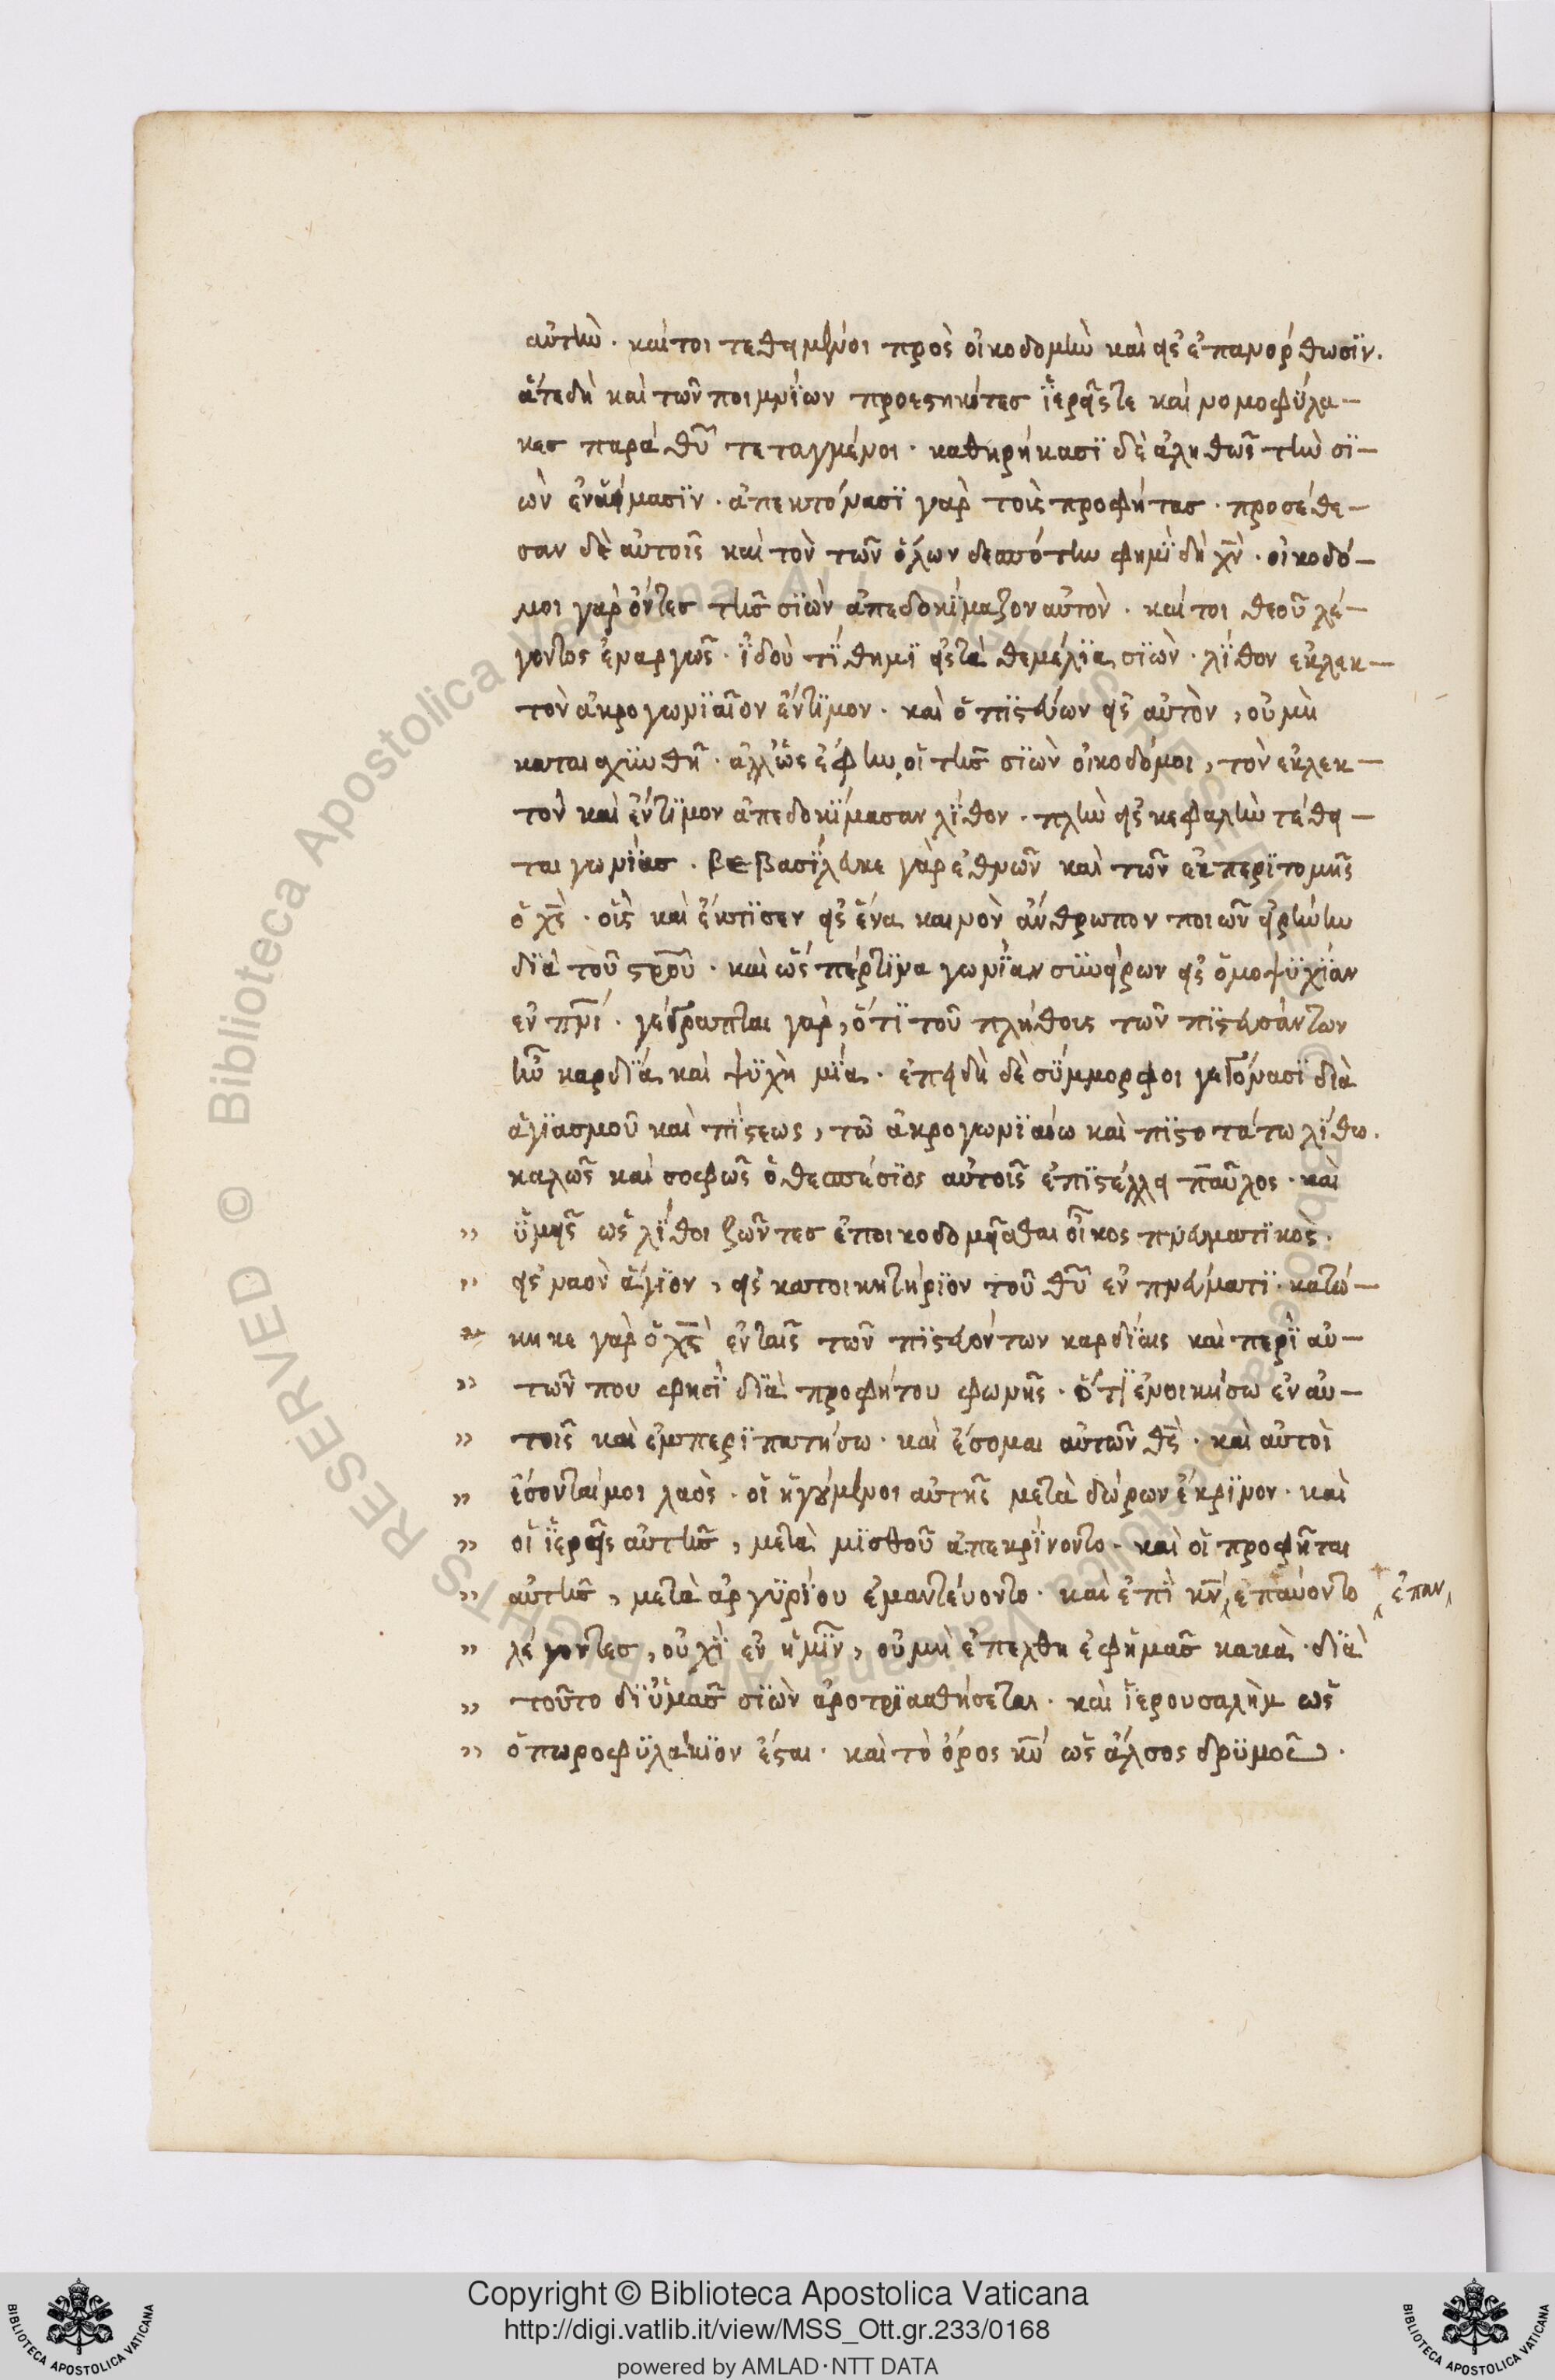 αὐτὴν. καίτοι τεθειμένοι πρὸς οἰκοδομὴν καὶ εἰς ἐπανόρθωσϊν.
ἅτε δὴ καὶ τῶν ποιμνΐων προεστηκότες ἱερεῖς τε καὶ νομοφύλα-
κες παρὰ θυ τεταγμένοι. καθηρήκασϊ δὲ ἀληθῶς τὴν σϊ-
ὼν ἐν αἵμασϊν. ἀπεκτόνασϊ γὰρ τοὺς προφήτας. προσέθε-
σαν δὲ αὐτοῖς καὶ τὸν τῶν ὅλων δεσπότην φημῒ δὴ χν. οἰκοδό-
μοι γὰρ ὄντες τῆς σϊὼν ἀπεδοκΐμαζον αὐτὸν. καίτοι θεοῦ λέ-
γοντος ἐναργῶς. ἰδοὺ τΐθημϊ εἰς τὰ θεμέλϊα σϊὼν. λΐθον ἐκλεκ-
τὸν ἀκρογωνϊαῖον ἔντϊμον. καὶ ὁ πϊστεύων εἰς αὐτὸν, οὐ μὴ
καταισχϋνθῆ. ἀλλ' ὡς ἔφην, οἱ τῆς σϊὼν οἰκοδόμοι, τὸν ἐκλεκ-
τὸν καὶ ἔντϊμον ἀπεδοκΐμασαν λΐθον. πλὴν εἰς κεφαλὴν τέθει-
ται γωνΐας. βεβασΐλευκε γὰρ ἐθνῶν καὶ τῶν ἐκ περϊτομῆς
ὁ χς. οὓς καὶ ἔκτϊσεν εἰς ἕνα καινὸν ἄνθρωπον ποιῶν εἰρήνην
δϊὰ τοῦ στρου. καὶ ὥσπερ τϊνα γωνΐαν συνείρων εἰς ὁμοψϋχΐαν
ἐν πνι. γέγραπται γὰρ, ὅτϊ τοῦ πλήθους τῶν πϊστευσάντων
ἦν καρδΐα καὶ ψϋχὴ μΐα. ἐπειδὴ δὲ σύμμορφοι γεγόνασϊ δϊὰ
ἁγϊασμοῦ καὶ πΐστεως, τῶ ἀκρογωνϊαίω καὶ πϊστοτάτω λΐθω.
καλῶς καὶ σοφῶς ὁ θεσπέσϊος αὐτοῖς ἐπϊστέλλει παῦλος. καὶ
" ὑμεῖς ὡς λΐθοι ζῶντες ἐποικοδομεῖσθαι οἶκος πνευματϊκὸς.
" εἰς ναὸν ἅγϊον, εἰς κατοικητήρϊον τοῦ θυ ἐν πνεύματϊ. κατώ-
" κηκε γὰρ ὁ χς ἐν ταῖς τῶν πϊστευόντων καρδΐαις καὶ περὶ αὐ-
" τῶν που φησῒ δϊὰ προφήτου φωνῆς. ὅτϊ ἐνοικήσω ἐν αὐ-
" τοῖς καὶ ἐμπερϊπατήσω. καὶ ἔσομαι αὐτῶν θς. καὶ αὐτοὶ
" ἔσονταί μοι λαὸς. οἱ ἡγούμενοι αὐτῆς μετὰ δώρων ἔκρϊνον. καὶ
" οἱ ἱερεῖς αὐτῆς, μετὰ μϊσθοῦ ἀπεκρΐνοντο. καὶ οἱ προφῆται
" αὐτῆς, μετὰ ἀργϋρΐου ἐμαντεύοντο. καὶ ἐπὶ κν, ἐπαύοντο ἐπαν
" λέγοντες, οὐχῒ ἐν ἡμῖν, οὐ μὴ ἐπελθη ἐφ ἡμᾶς κακὰ. δϊὰ
" τοῦτο δϊ' ὑμᾶς σϊὼν ἀροτρϊαθήσεται. καὶ ἱερουσαλὴμ ὡς
" ὀπωροφϋλάκϊον ἔσται. καὶ τὸ ὄρος κυ ὡς ἄλσος δρϋμοῦ.
Biblioteca Apostolica Vaticana
ALL RIGHTS RESERVED ©
Copyright © Biblioteca Apostolica Vaticana
http://digi.vatlib.it/view/MSS_Ott.gr.233/0168
powered by AMLAD·NTT DATA
BIBLIOTECA APOSTOLICA VATICANA
BIBLIOTECA APOSTOLICA VATICANA